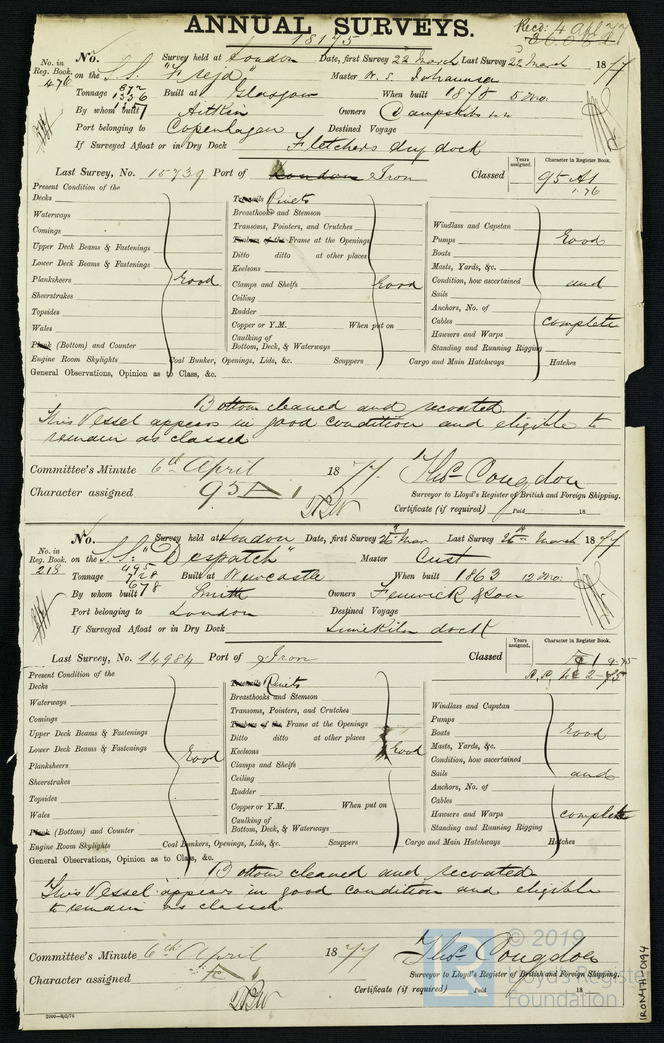 ANNUAL SURVEYS.
18175
Recd: 4 Apl 77
No. in Reg. Book. 476
No. Survey held at London Date, first Survey 22 March Last Survey 22 March 1877
on the S.S. "Freja" Master W. S. Johannsen
Tonnage 872 1336 Built at Glasgow When built 1875 5 Mo.
By whom built Aitkin Owners Dampskibs
Port belonging to Copenhagen Destined Voyage
If Surveyed Afloat or in Dry Dock Fletchers dry dock
Last Survey, No. 15739 Port of London Iron Classed
Years assigned. Character in Register Book.
95 A1
1.76
Present Condition of the
Decks
Waterways
Comings
Upper Deck Beams & Fastenings
Lower Deck Beams & Fastenings
Planksheers
Sheerstrakes
Topsides
Wales
Plank (Bottom) and Counter
Good
Treenails Rivets
Breasthooks and Stemson
Transoms, Pointers, and Crutches
Timbers of the Frame at the Openings
Ditto ditto at other places
Keelsons
Clamps and Shelfs
Ceiling
Rudder
Copper or Y.M. When put on
Caulking of Bottom, Deck, & Waterways
Good
Windlass and Capstan
Pumps
Boats
Masts, Yards, &c.
Condition, how ascertained
Sails
Anchors, No. of
Cables
Hawsers and Warps
Standing and Running Rigging
Good
and
complete
Engine Room Skylights Coal Bunker, Openings, Lids, &c. Scuppers Cargo and Main Hatchways Hatches
General Observations, Opinion as to Class, &c.
Bottom cleaned and recoated.
This Vessel appears in good condition and eligible to
remain as classed
Committee's Minute 6th April 1877 Thos. Congdon
Character assigned 95 A 1 Surveyor to Lloyd's Register of British and Foreign Shipping.
Certificate (if required) Paid 18
No. in Reg. Book. 218
No. Survey held at London Date, first Survey 26 Mar Last Survey 26th March 1877
on the S.S. "Despatch" Master Cust
Tonnage 495 728 678 Built at Newcastle When built 1863 12 Mo.
By whom built Smith Owners Fenwick & Son
Port belonging to London Destined Voyage
If Surveyed Afloat or in Dry Dock Limekiln dock
Last Survey, No. 14984 Port of Iron Classed
Years assigned. Character in Register Book.
1 9-75
2-75
Present Condition of the
Decks
Waterways
Comings
Upper Deck Beams & Fastenings
Lower Deck Beams & Fastenings
Planksheers
Sheerstrakes
Topsides
Wales
Plank (Bottom) and Counter
Good
Treenails Rivets
Breasthooks and Stemson
Transoms, Pointers, and Crutches
Timbers of the Frame at the Openings
Ditto ditto at other places
Keelsons
Clamps and Shelfs
Ceiling
Rudder
Copper or Y.M. When put on
Caulking of Bottom, Deck, & Waterways
Good
Windlass and Capstan
Pumps
Boats
Masts, Yards, &c.
Condition, how ascertained
Sails
Anchors, No. of
Cables
Hawsers and Warps
Standing and Running Rigging
Good
and
complete
Engine Room Skylights Coal Bunkers, Openings, Lids, &c. Scuppers Cargo and Main Hatchways Hatches
General Observations, Opinion as to Class, &c.
Bottom cleaned and recoated
This Vessel appears in good condition and eligible
to remain as classed.
Committee's Minute 6th April 1877 Thos. Congdon
Character assigned Surveyor to Lloyd's Register of British and Foreign Shipping.
Certificate (if required) Paid 18
© 2019
Lloyd's Register
Foundation
IRON471-0194